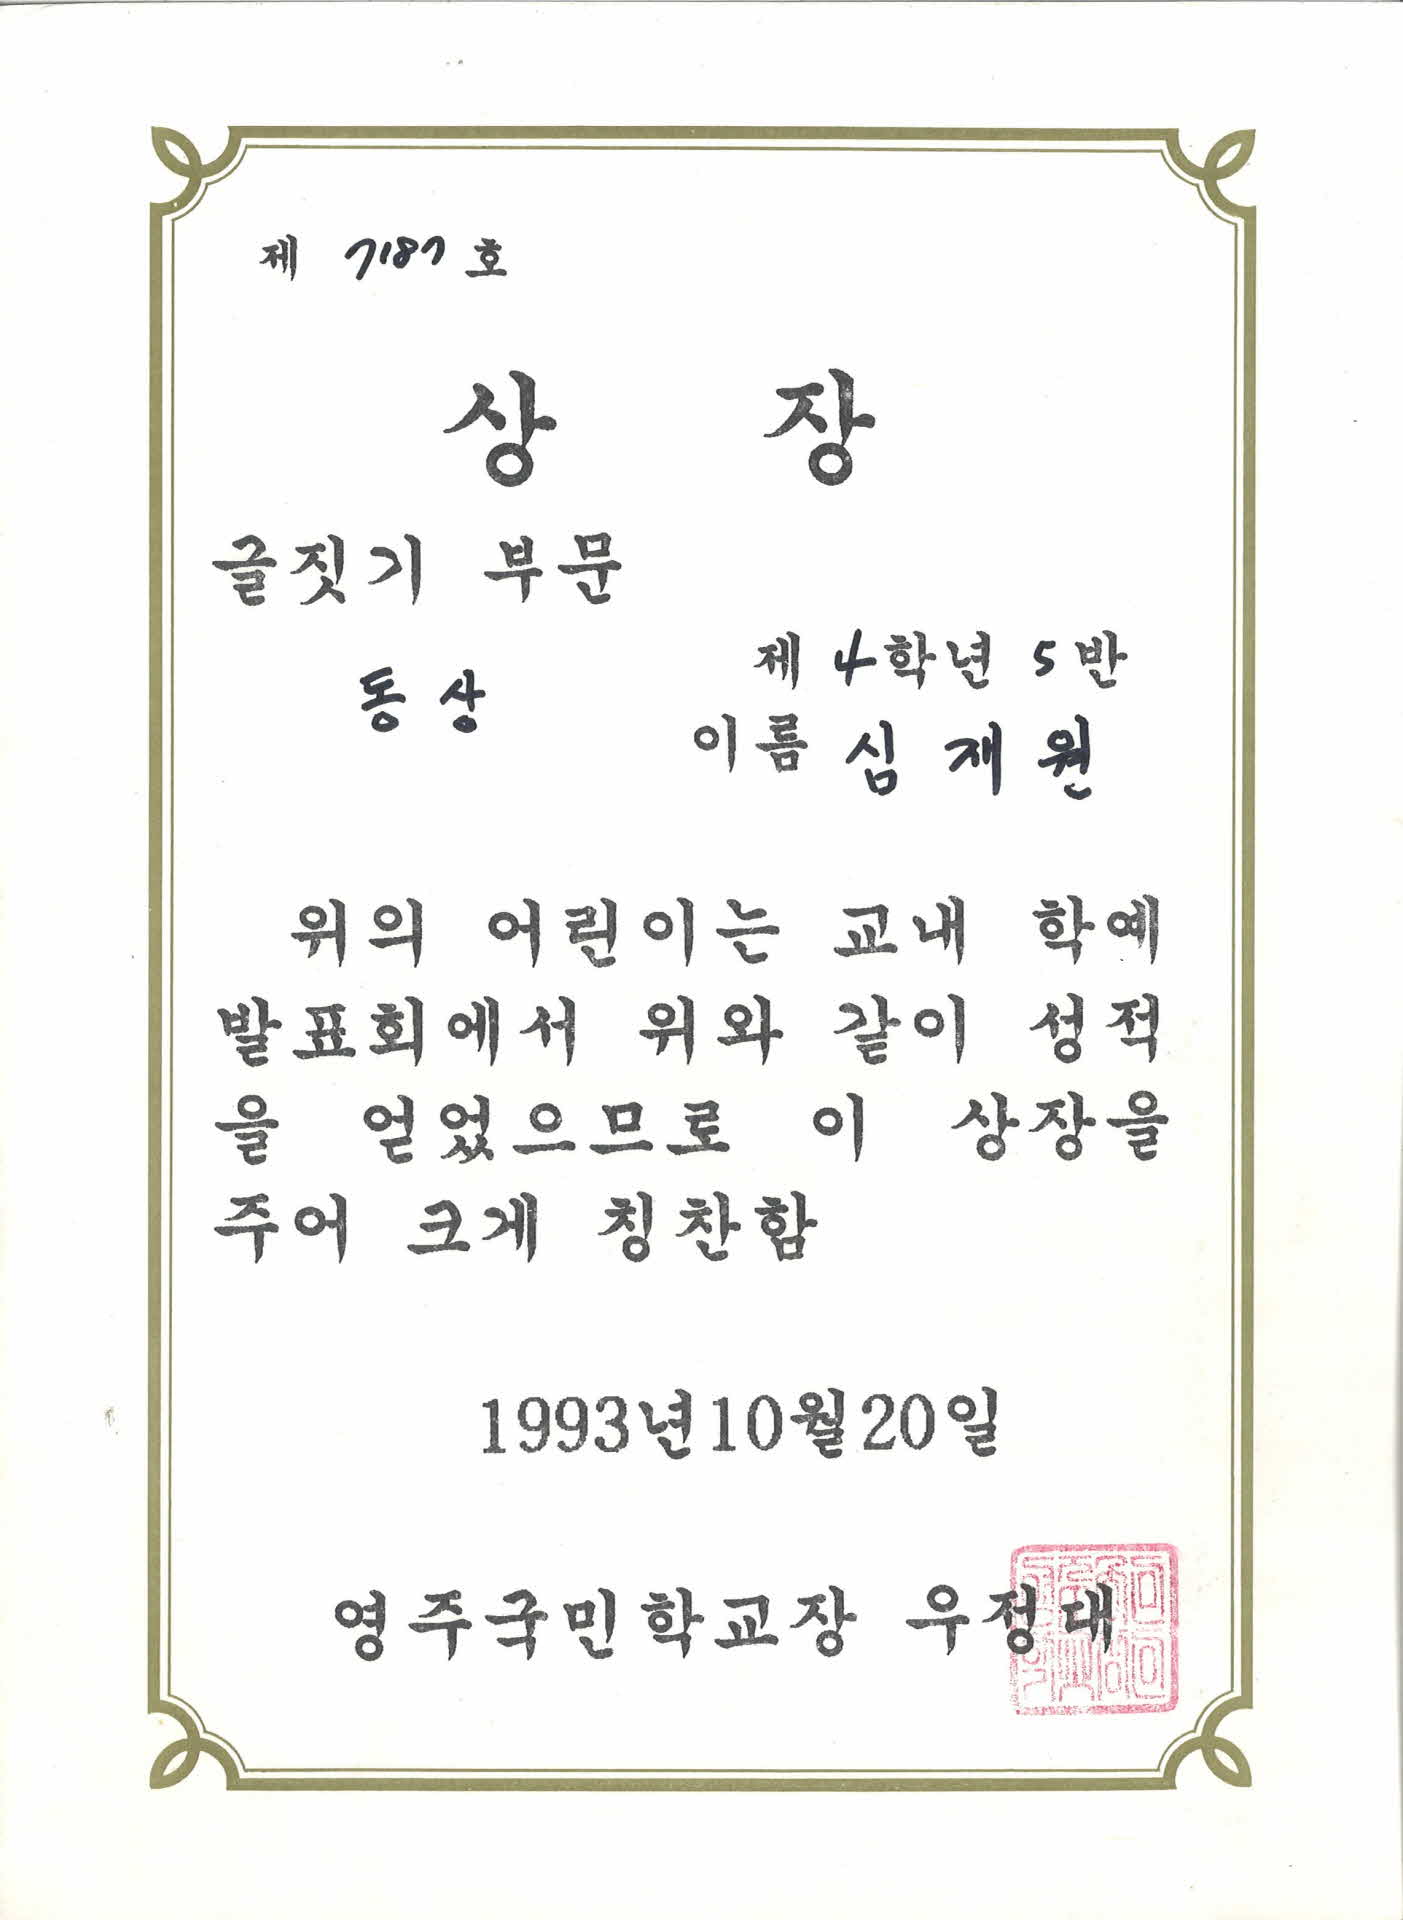 제 7187 호
상 장
글짓기 부문
동상
제 4 학년 5 반
이름 심 재 원
위의 어린이는 교내 학예
발표회에서 위와 같이 성적
을 얻었으므로 이 상장을
주어 크게 칭찬함
1993년10월20일
영주국민학교장 우정대